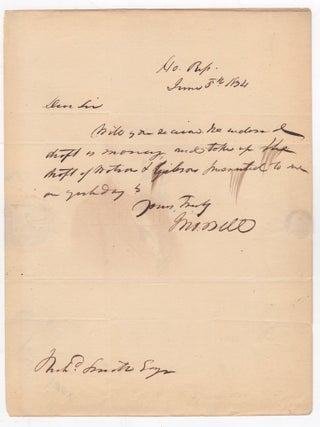 Ho. Reps.
June 5th 1834
Dear Sir
Will you receive the enclosed
draft as money and take up the
draft of Watson & Gibson presented to me
on yesterday &
yours Truly
Jno. Bell
Richd Smith Esqr